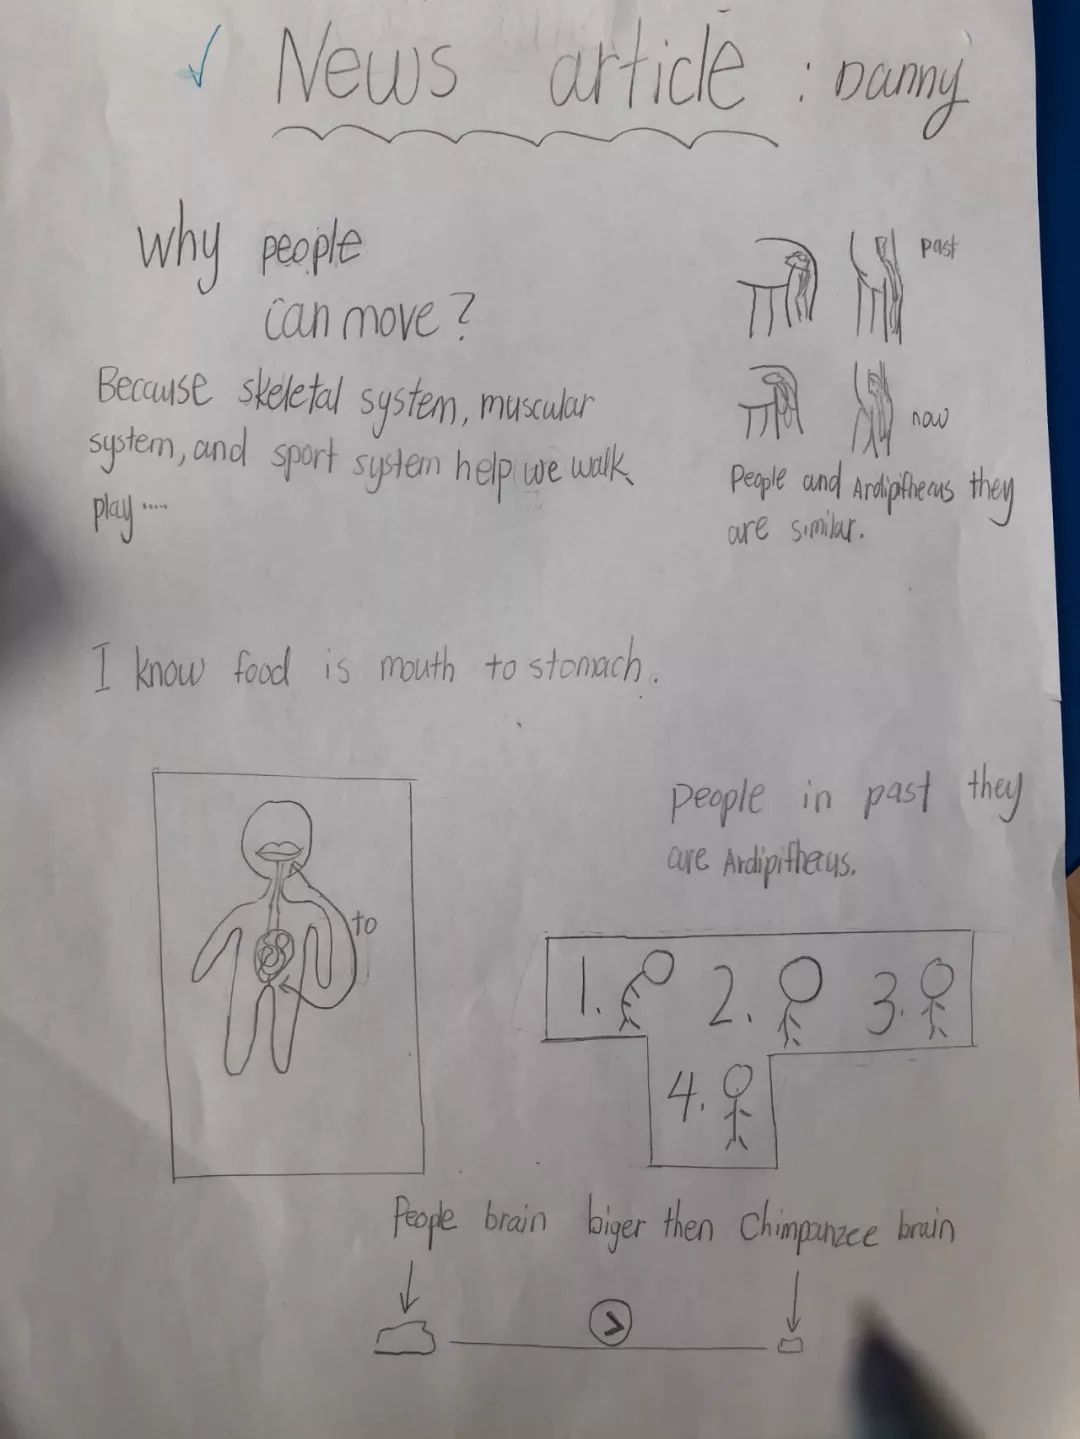 News article : Danny
Why people
can move?
Because skeletal system, muscular
system, and sport system help we walk
play .....
past
now
People and Ardipithecus they
are similar.
I know food is mouth to stomach.
to
people in past they
are Ardipithecus.
1. 2. 3.
4.
People brain biger then Chimpanzee brain
>